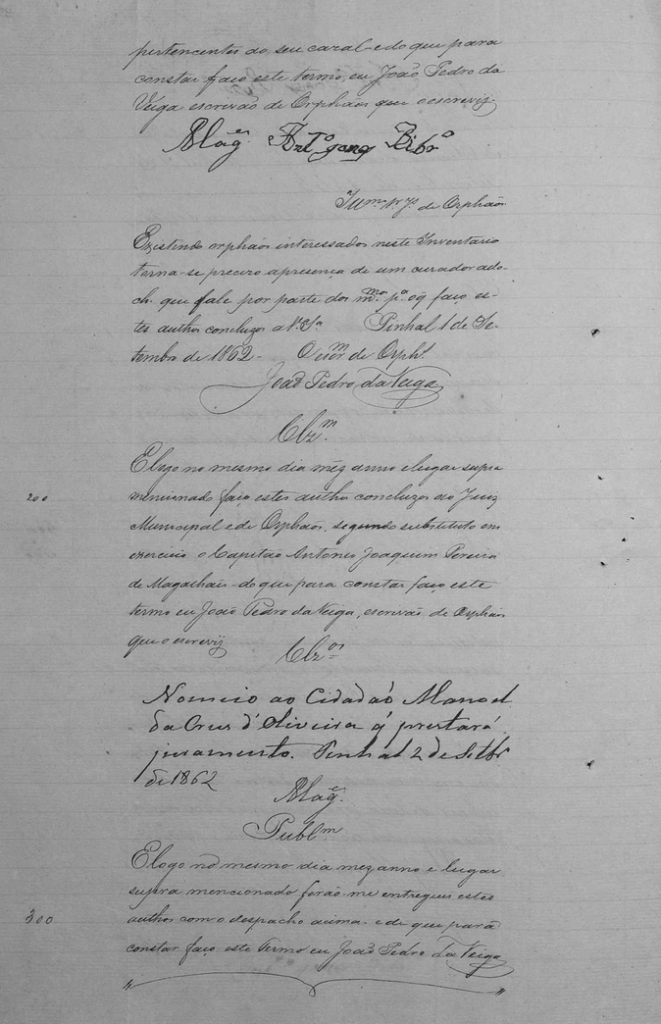 pertencentes ao seu cazal e do que para
constar faço este termo, eu João Pedro da
Veiga escrivão de Orphãos que o escrevy
Magẽs
de Orphãos
Existindo orphãos interessados neste Inventario
torna-se precizo apresença de um curador adoc-
ch. que falle por parte dos mmos pa. oq faço es-
tes authos concluzos a V.Sa Pinhal 1 de Se-
tembro de 1862 - O Escrm de Orphs.
João Pedro da Veiga
Clzm
E logo no mesmo dia mêz anno e lugar supra
200
mencionado faço estes authos concluzos ao Juiz
Municipal e de Orphãos, segundo substituto em
exercicio o Capitão Antonio Joaquim Pereira
de Magalhais - do que para constar faço este
termo eu João Pedro da Veiga, escrivão de Orphãos
que o escrevy
Clzos
Nomeio ao Cidadaõ Manoel
da Crus d'Oliveira q̃ prestará
juramento. Pinhal 2 de Setbr
de 1862
Magẽs
Publm
E logo no mesmo dia mez anno e lugar
supra mencionado forão-me entregues estes
300
authos com o despacho acima e de que para
constar faço este termo eu João Pedro da Veiga